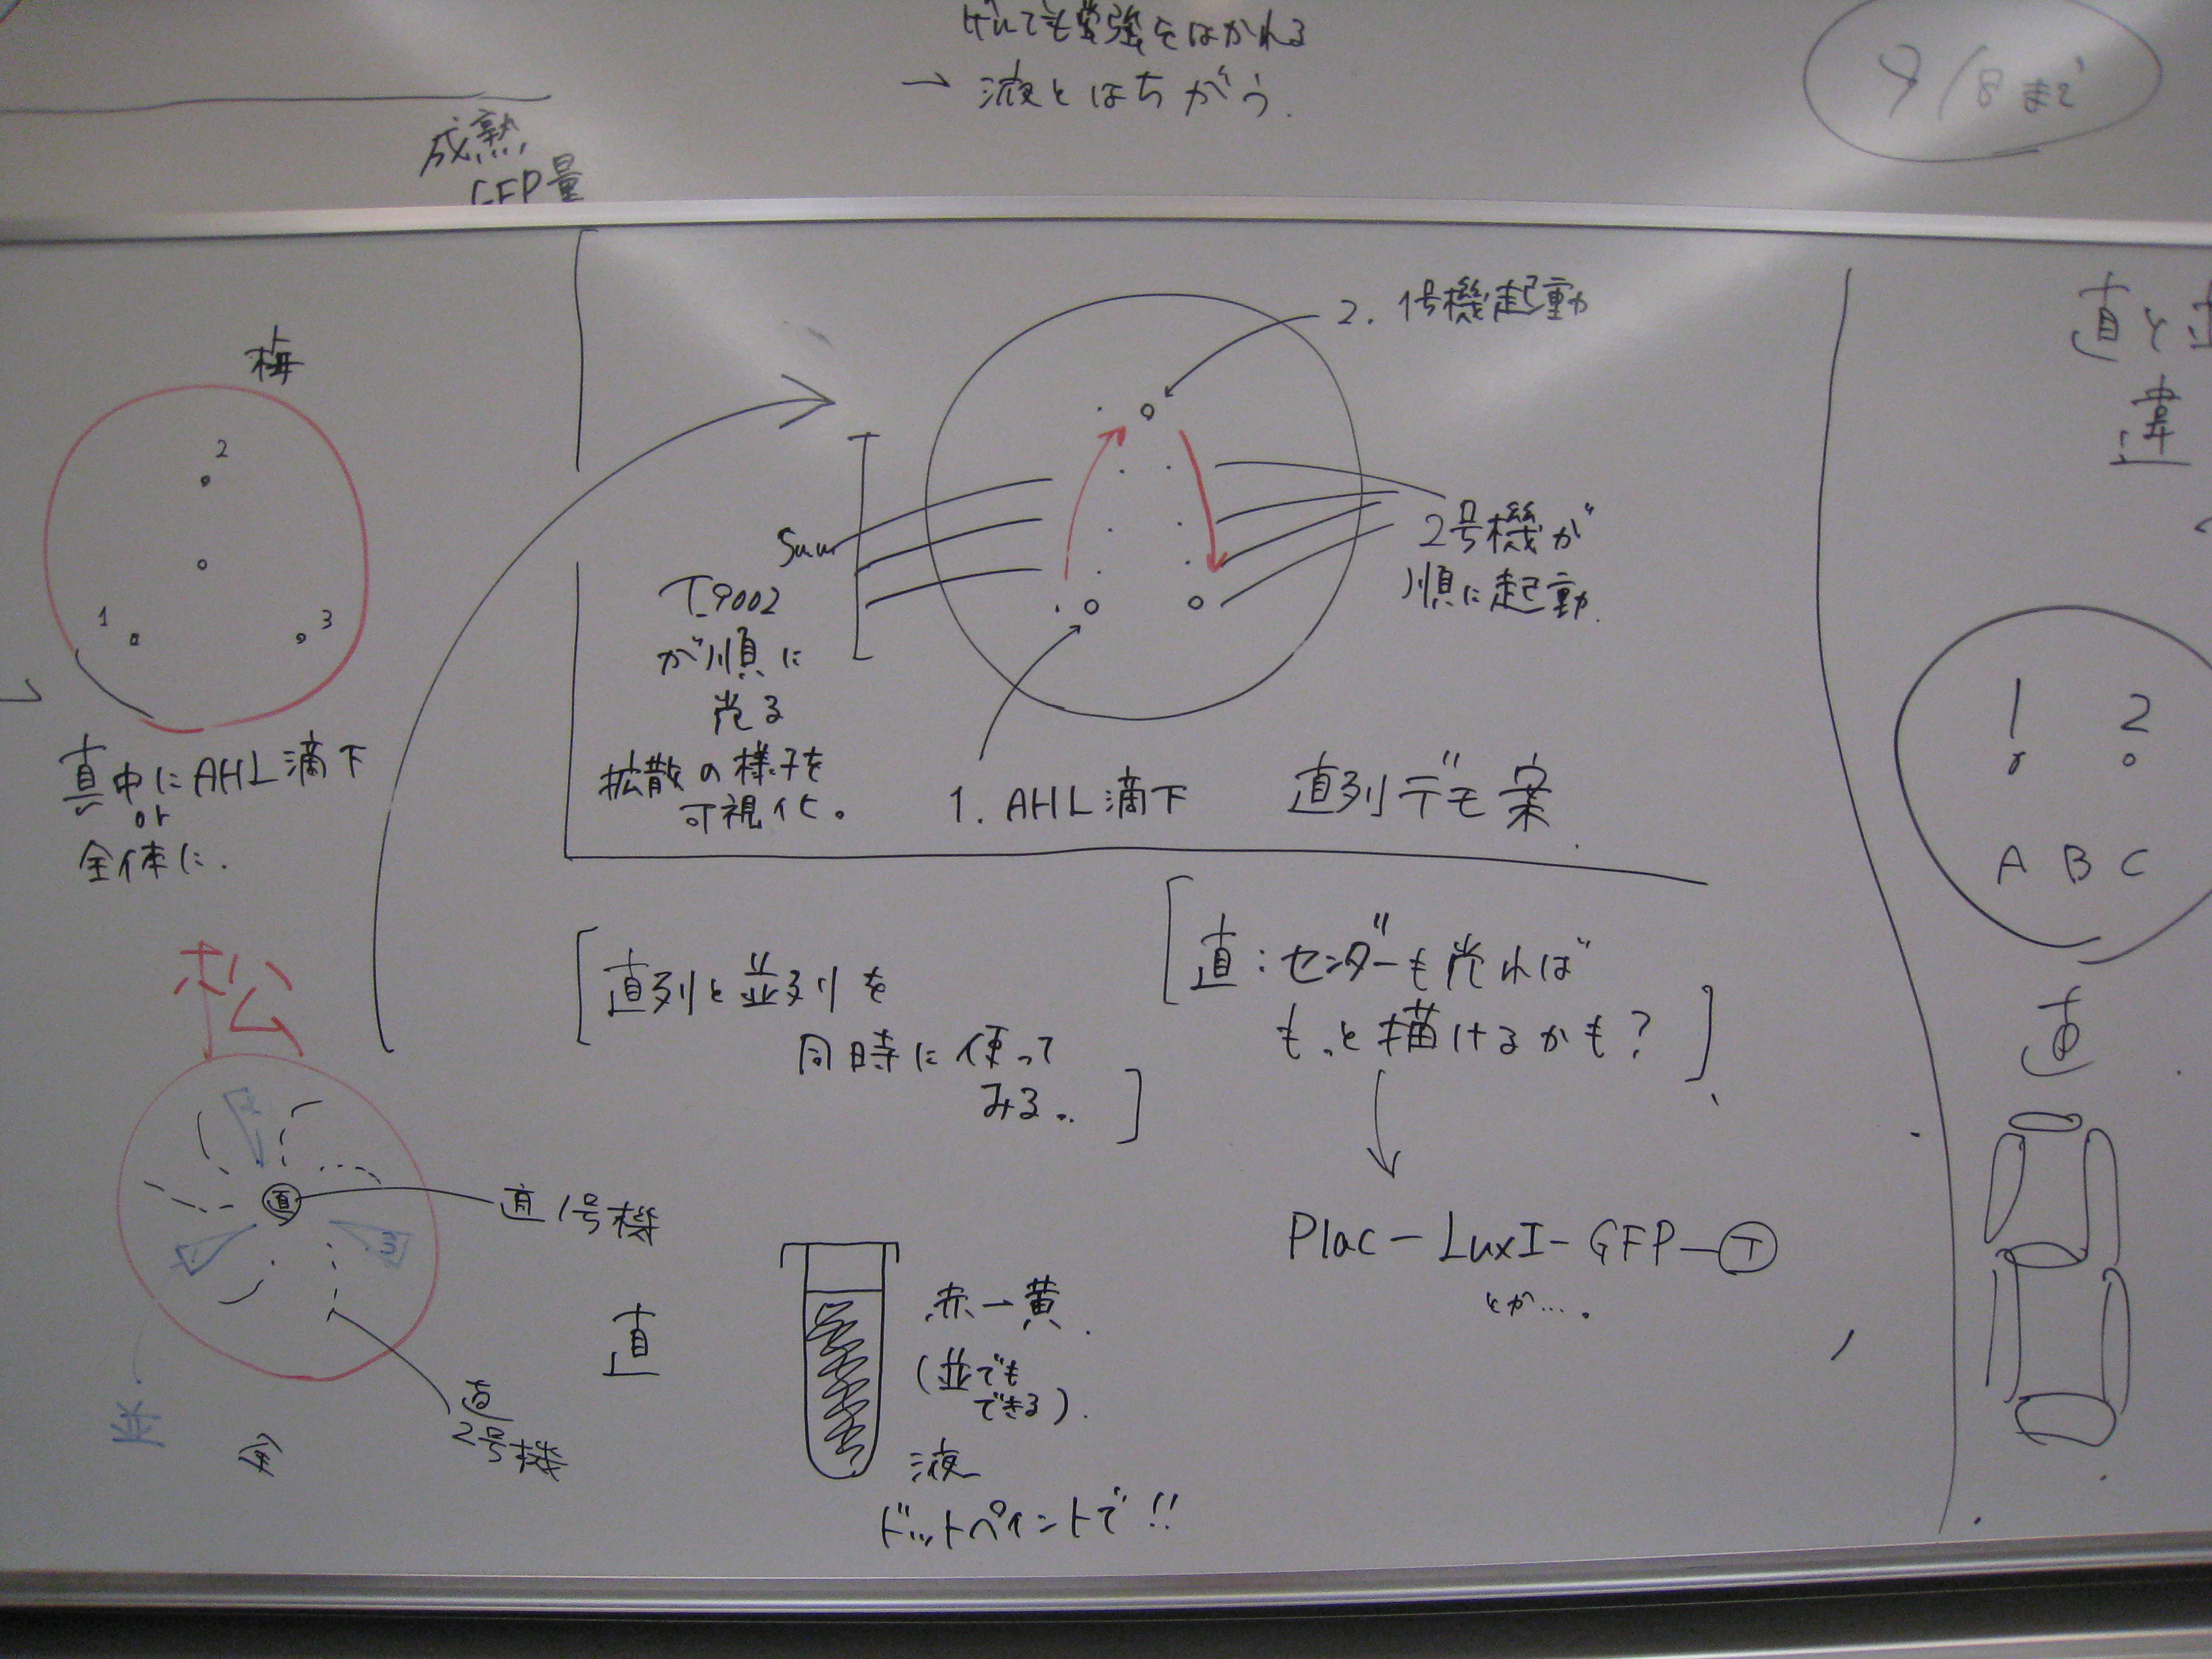 → 液とはちがう.
9/8まで
成熟
GFP量
梅
2
1
3
真中にAHL滴下
or
全体に.
2. 1号機起動
5mm
T9002
が順に
光る
拡散の様子を
可視化。
2号機が
順に起動.
1. AHL滴下
直列デモ案
直と並
違
1 2
A B C
直
松
2
1
3
直
直1号機
直
2号機
[直列と並列を
同時に使って
みる..]
[直:センダーも光れば
もっと描けるかも?]
Plac－LuxI－GFP－T
とか….
直
赤→黄.
(並でも
できる).
液
ドットペイントで!!